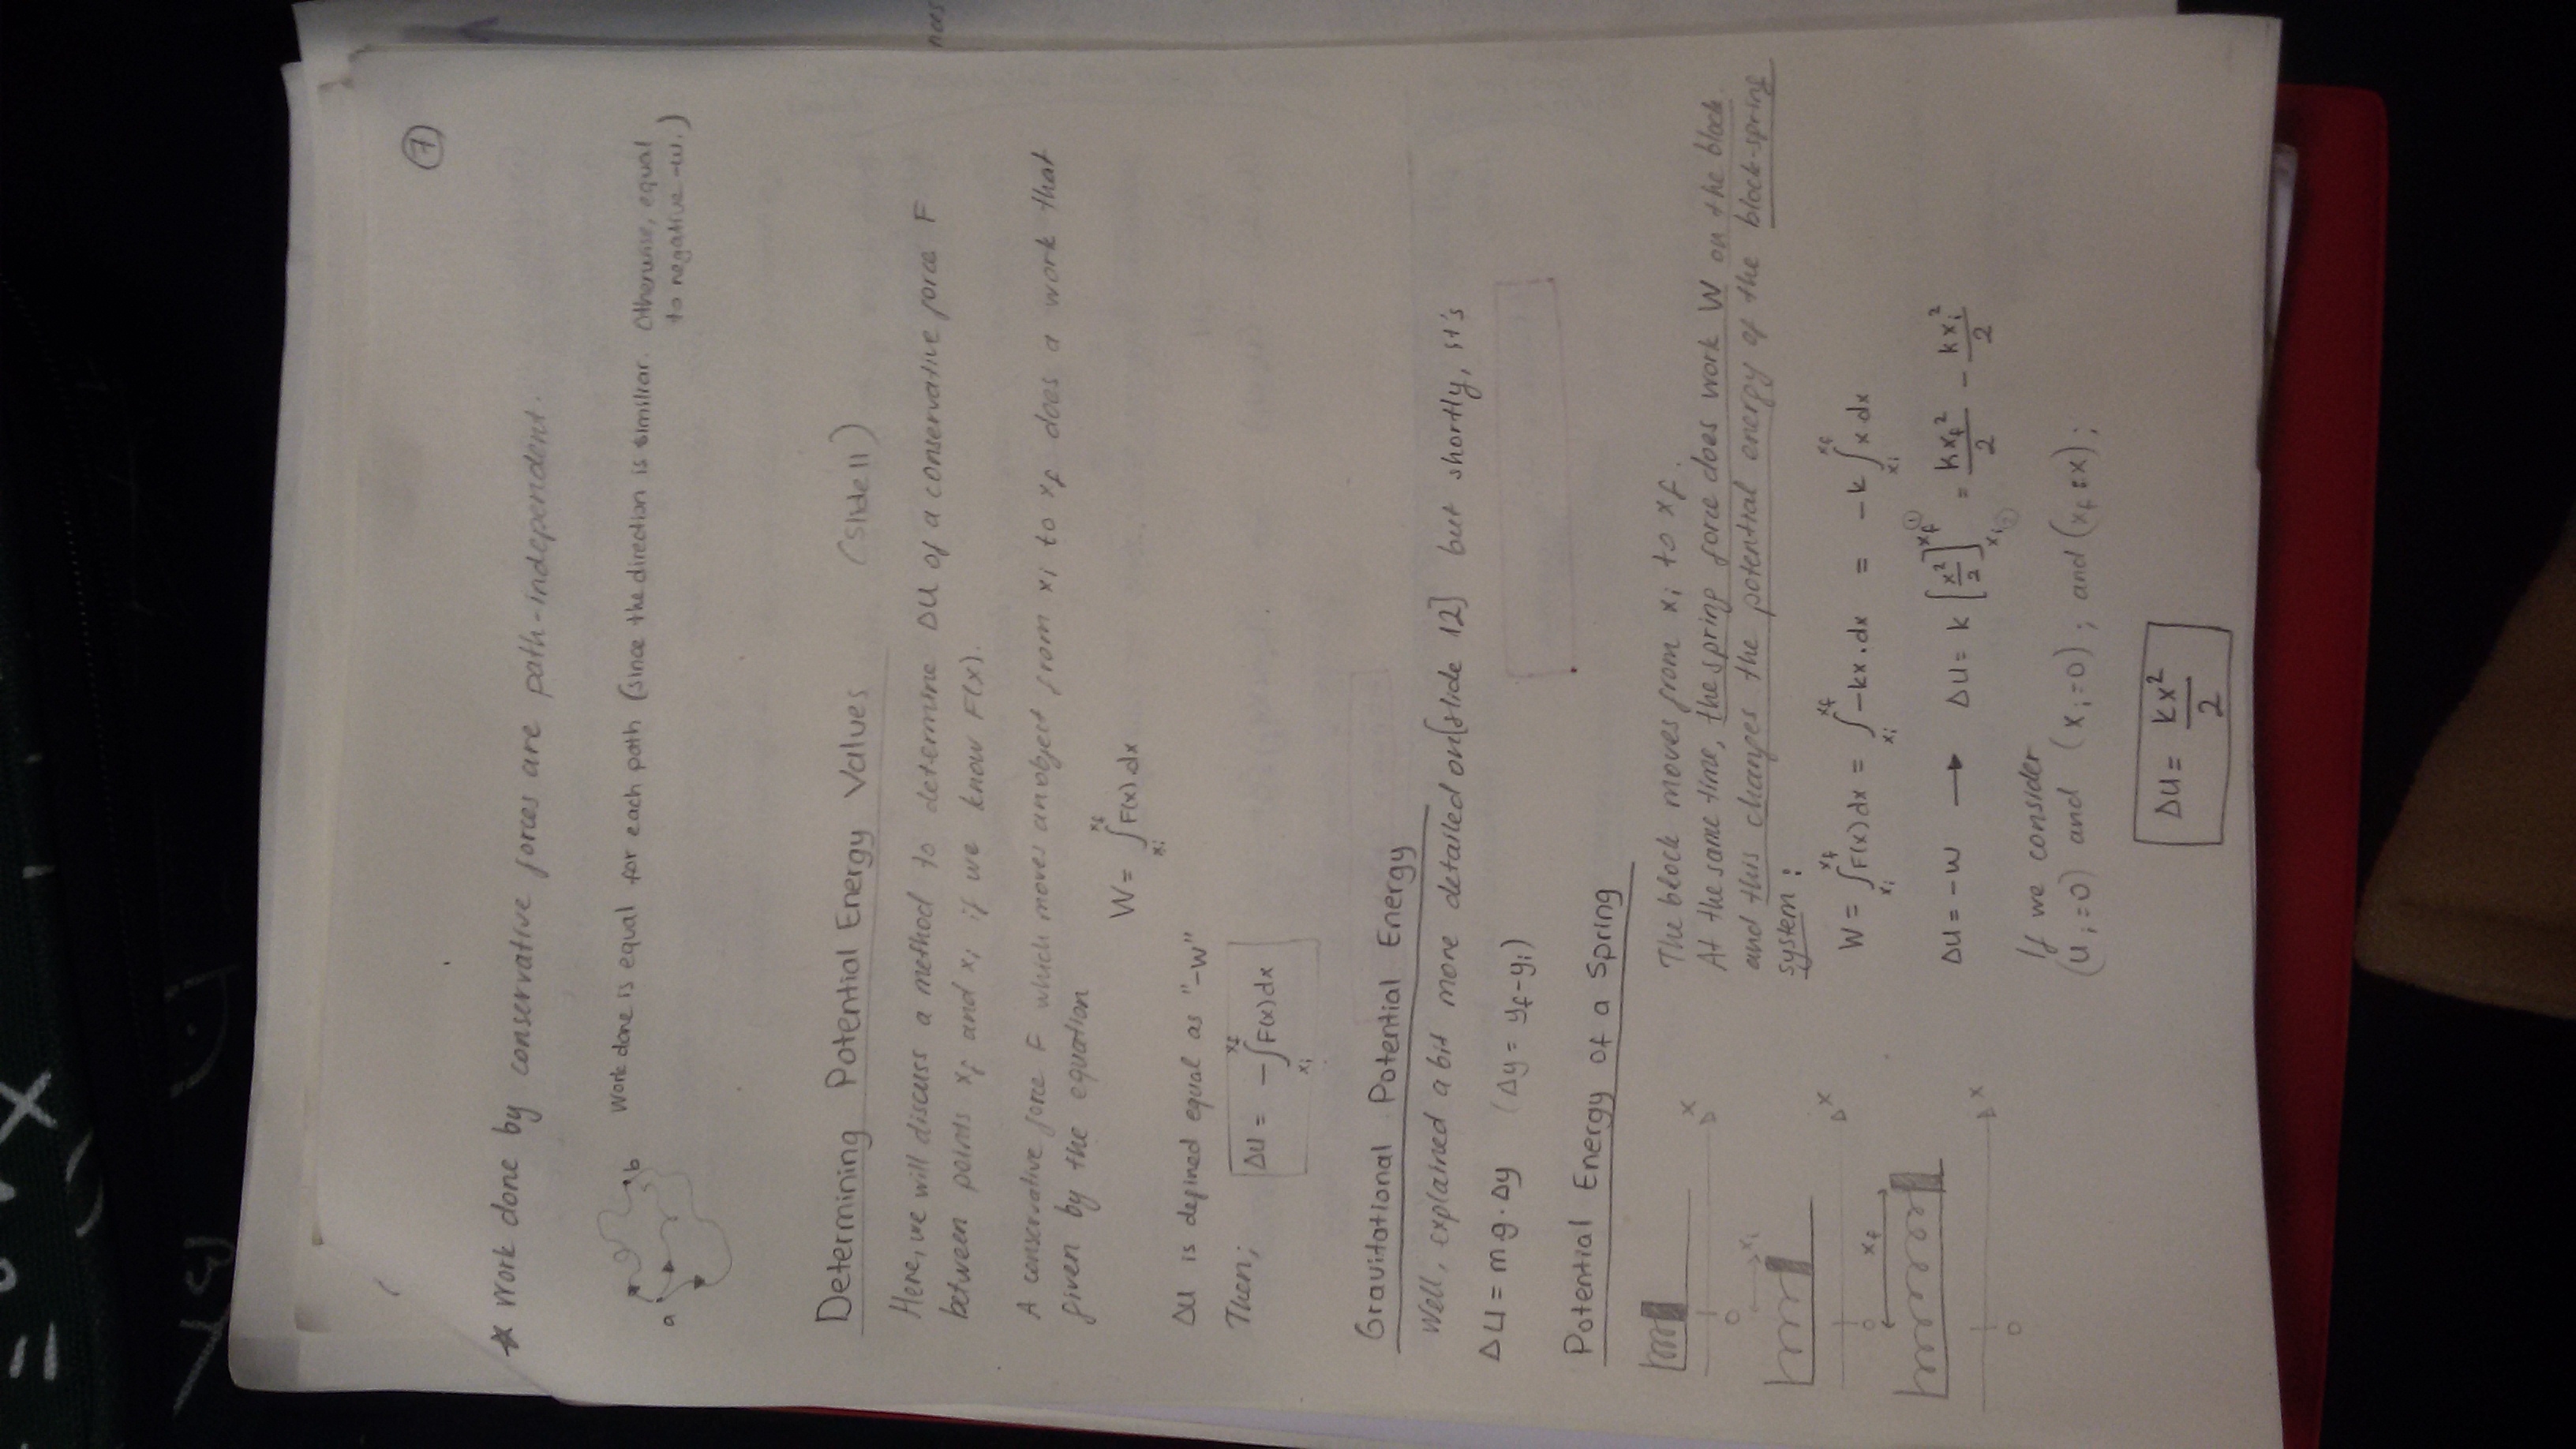 7
* Work done by conservative forces are path-independent.
a
b
Work done is equal for each path (since the direction is similiar. Otherwise, equal
to negative -W.)
Determining Potential Energy Values (Slide 11)
Here, we will discuss a method to determine ΔU of a conservative force F
between points xf and xi if we know F(x).
A conservative force F which moves an object from xi to xf does a work that
given by the equation
W = ∫_{xi}^{xf} F(x).dx
ΔU is defined equal as "-W"
Then; ΔU = -∫_{xi}^{xf} F(x)dx
Gravitational Potential Energy
Well, explained a bit more detailed on [slide 12] but shortly, it's
ΔU = m.g.Δy (Δy = yf - yi)
Potential Energy of a Spring
x
0
xi
x
0
xf
x
0
The block moves from xi to xf.
At the same time, the spring force does work W on the block
and this changes the potential energy of the block-spring
system:
W = ∫_{xi}^{xf} F(x)dx = ∫_{xi}^{xf} -kx.dx = -k ∫_{xi}^{xf} x dx
ΔU = -W → ΔU = k [x²/2]_{xi ②}^{xf ①} = kxf²/2 - kxi²/2
If we consider
(Ui=0) and (xi=0); and (xf=x);
ΔU = kx²/2